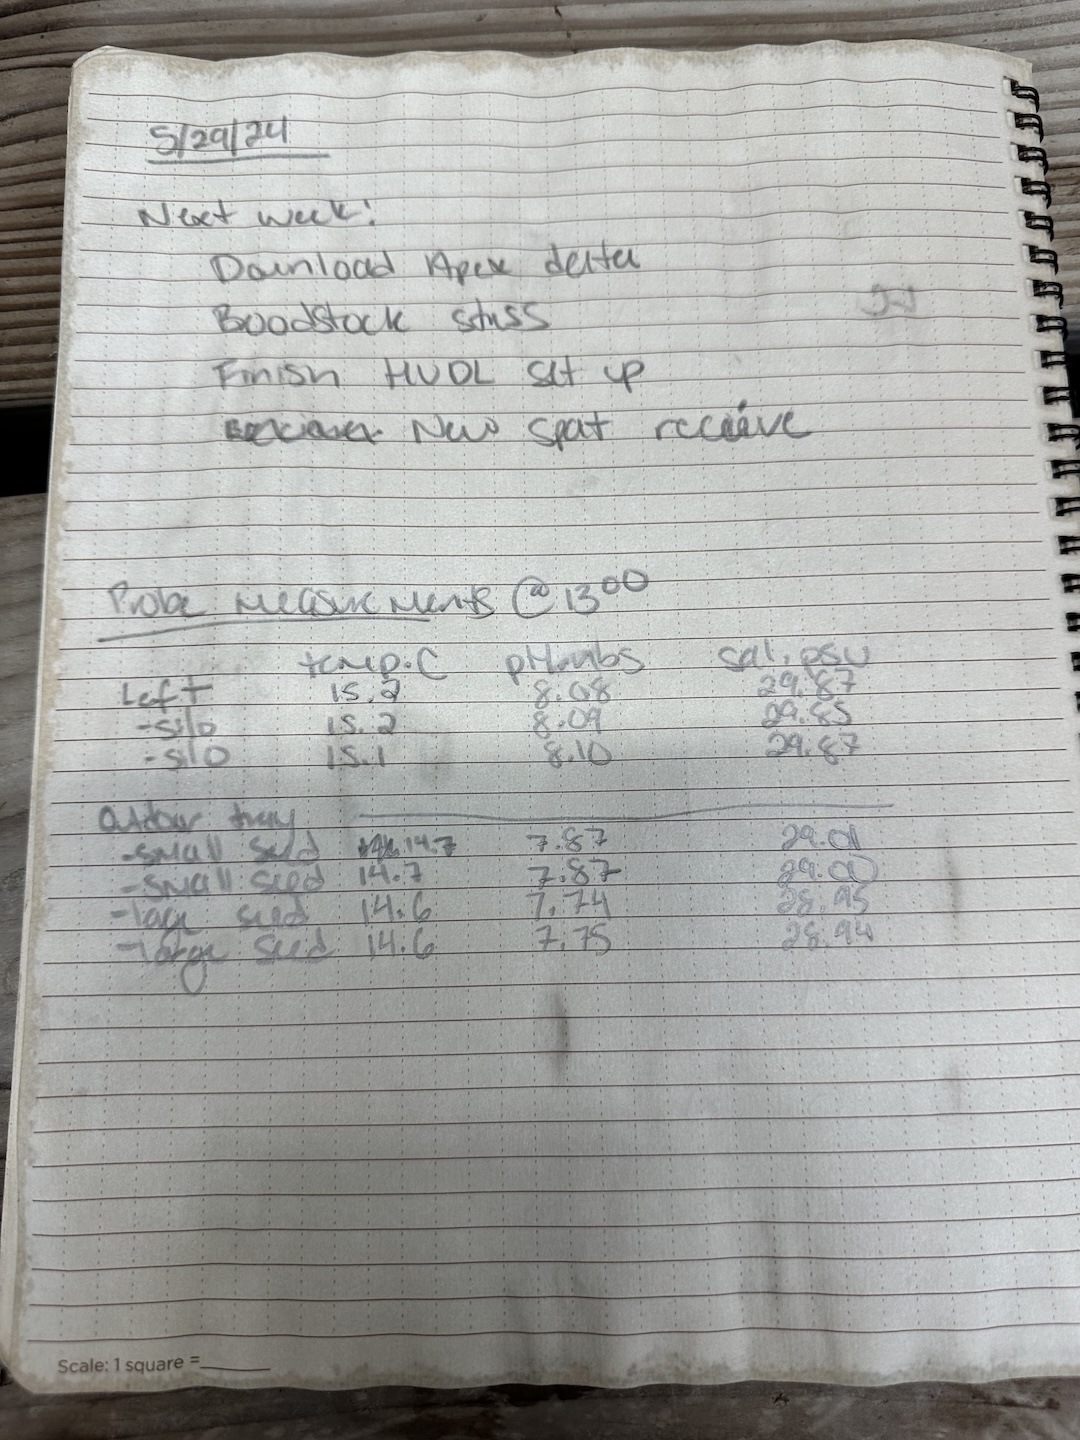 5/29/24
Next week:
Download Apex data
Boodstock stress
Finish HUDL set up
New spat receive
Probe Measurements @ 1300
temp.C pH.nbs sal.psu
Left 15.2 8.08 29.87
-silo 15.2 8.09 29.85
-silo 15.1 8.10 29.87
Outdoor tray
-small seed 14.7 7.87 29.01
-small seed 14.7 7.87 29.00
-lage seed 14.6 7.74 28.95
-large seed 14.6 7.75 28.94
Scale: 1 square =